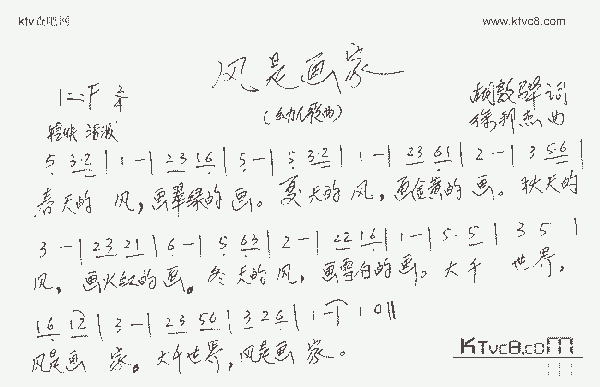 ktv吧网
www.ktvc8.com
风是画家
1=F 2/4
(幼儿歌曲)
词
轻快 活泼
徐邦杰曲
5 32 | 1 - | 23 16 | 5 - | 5 32 | 1 - | 23 61 | 2 - | 3 56 |
春天的 风，画翠绿的画。夏天的风，画金黄的画。秋天的
3 - | 23 21 | 6 - | 5 63 | 2 - | 22 16 | 1 - | 5·5 | 3 5 |
风，画火红的画。冬天的风，画雪白的画。大千 世界，
16 12 | 3 - | 23 56 | 3 26 | 1 - | 1 0 ||
风是画 家。大千世界，风是画 家。
KTVC8.com